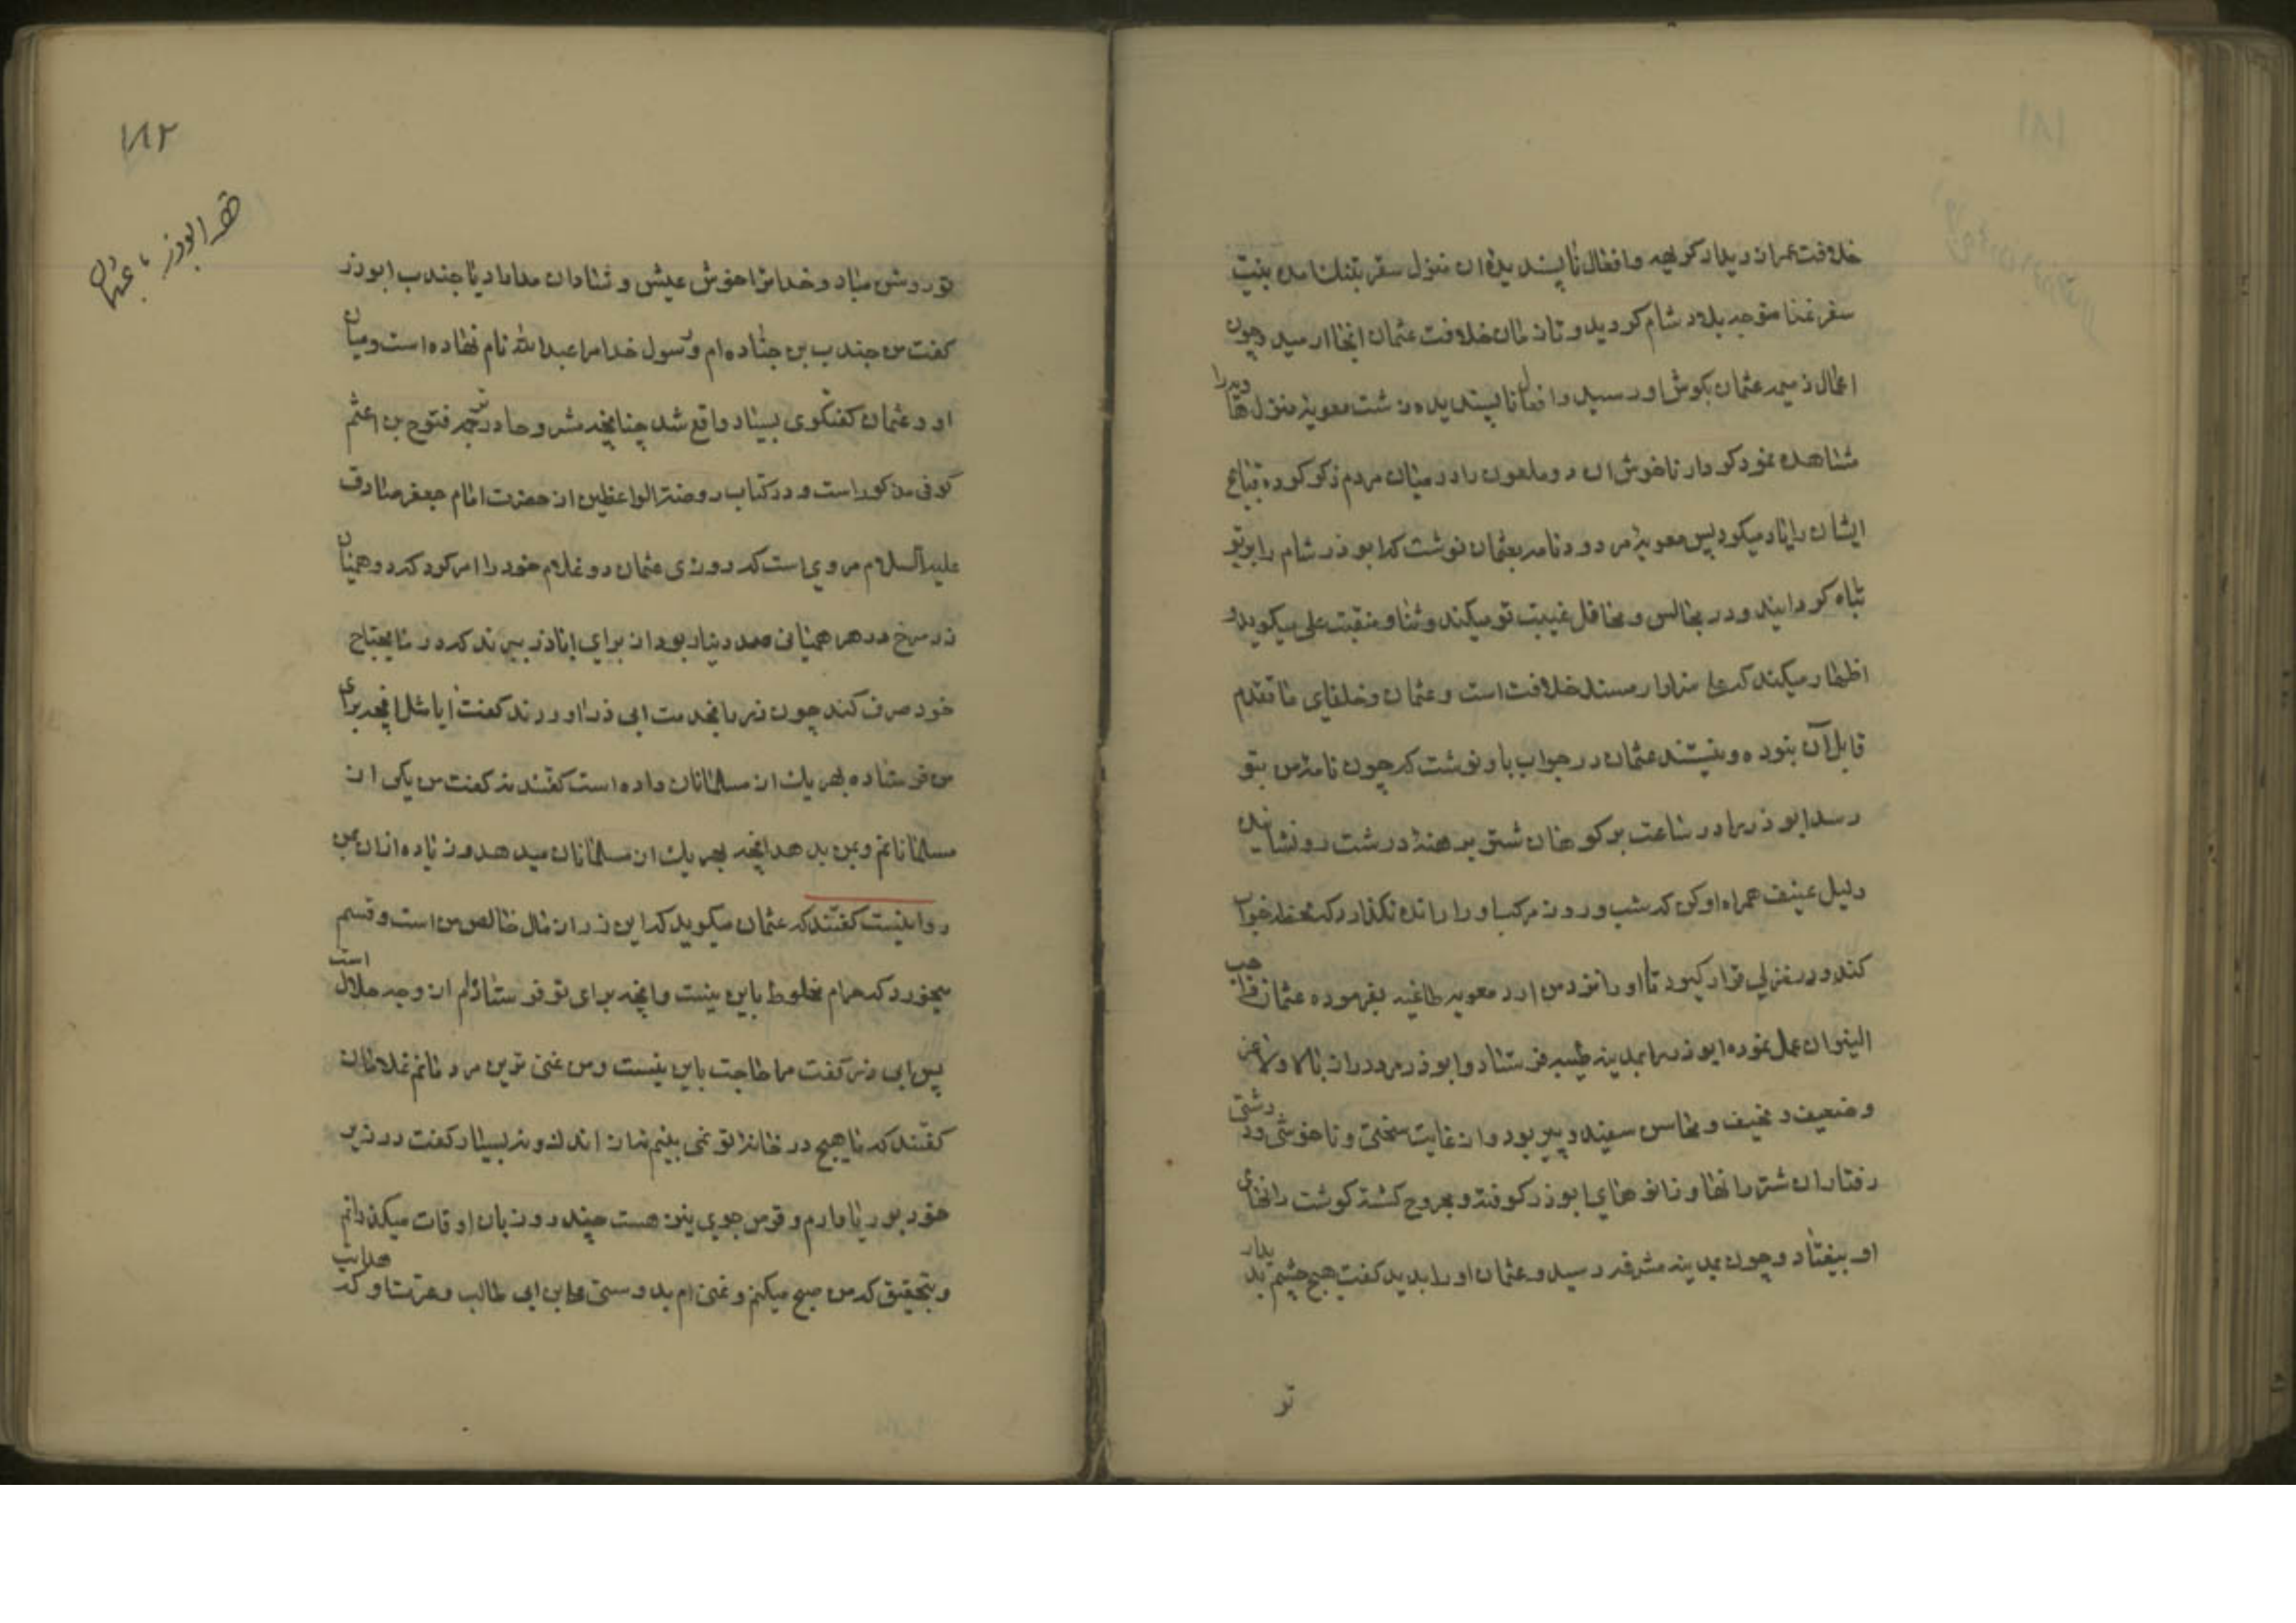 خلافت عمر از دیار کریهه و افعال ناپسندیده آن منزل سقر بتنك آمده بنیت
سفر غنا متوجه بلاد شام کردید و تا زمان خلافت عثمان انجا ارمید و چون
اعمال ذمیمه عثمان بکوش او رسید و افعال ناپسندیده زشت معویۀ منزل هاویه را
مشاهده نمود کردار ناخوش ان دو ملعون را در میان مردم ذکر کرده قبایح
ایشان را یاد میکرد پس معویۀ مردود نامه بعثمان نوشت که ابوذر شام را بر تو
تباه کردانید و در مجالس و محافل غیبت تو میکند و ثنا و منقبت علی میکوید و
اظهار میکند که علی سزاوار مسند خلافت است و عثمان و خلفای ما تقدم
قابل آن نبوده و نیستند عثمان در جواب باو نوشت که چون نامۀ من بتو
رسد ابوذر را در ساعت بر کوهان شتر برهنۀ درشت رو نشانیده
دلیل عنیف همراه او کن که شب و روز مرکب او را رانده نکذارد که لحظه خواب
کند و در منزلی قرار کیرد تا او را نزد من اورد معویه طاغیه بفرموده عثمان واجب
النیران عمل نموده ابوذر را بمدینه طیبه فرستاد و ابوذر مرد دراز بالا و لاغر
و ضعیف و نحیف و محاسن سفید و پیر بود و از غایت سختی و ناخوشی و درشتی
رفتار ان شتر رانها و زانوهای ابوذر کوفته و مجروح کشته کوشت رانهای
او بیفتاد و چون بمدینه مشرفه رسید و عثمان او را بدید کفت هیچ چشم بدیدار
تو
۱۸۲
قصه ابوذر با عثمان
تو روشن مباد و خدا ترا خوش عیش و شادان مداراد یا جندب ابوذر
کفت من جندب بن جناده ام و رسول خدا مرا عبدالله نام نهاده است و میان
او و عثمان کفتکوی بسیار واقع شد چنانچه مشروحا در ترجمه فتوح بن اعثم
کوفی مذکور است و در کتاب روضة الواعظین از حضرت امام جعفر صادق
علیه السلام مروی است که روزی عثمان دو غلام خود را امر کرد که دو همیان
زر سرخ در هر همیانی صد دینار بود از برای اباذر ببرند که در مایحتاج
خود صرف کند چون زر را بخدمت ابی ذر اوردند کفت ایا مثل انچه برای
من فرستاده بهر یك از مسلمانان داده است کفتند نه کفت من یکی از
مسلمانانم و بمن بدهد انچه بهر یك از مسلمانان میدهد و زیاده از ان بمن
روا نیست کفتند که عثمان میکوید که این زر از مال خالص من است و قسم
میخورد که حرام مخلوط باین نیست و انچه برای تو فرستاده ام از وجه حلال است
پس ابی ذر کفت مرا حاجت باین نیست و من غنی ترین مردمانم غلامان
کفتند که ما هیچ در خانۀ تو نمی بینیم نه از اندك و نه بسیار کفت در زیر
خود بوریا دارم و قرص جوی نیز هست چند روز بان اوقات میکذرانم
و بتحقیق که من صبح میکنم و غنی ام بدوستی علی بن ابی طالب و عترت او که هدایت